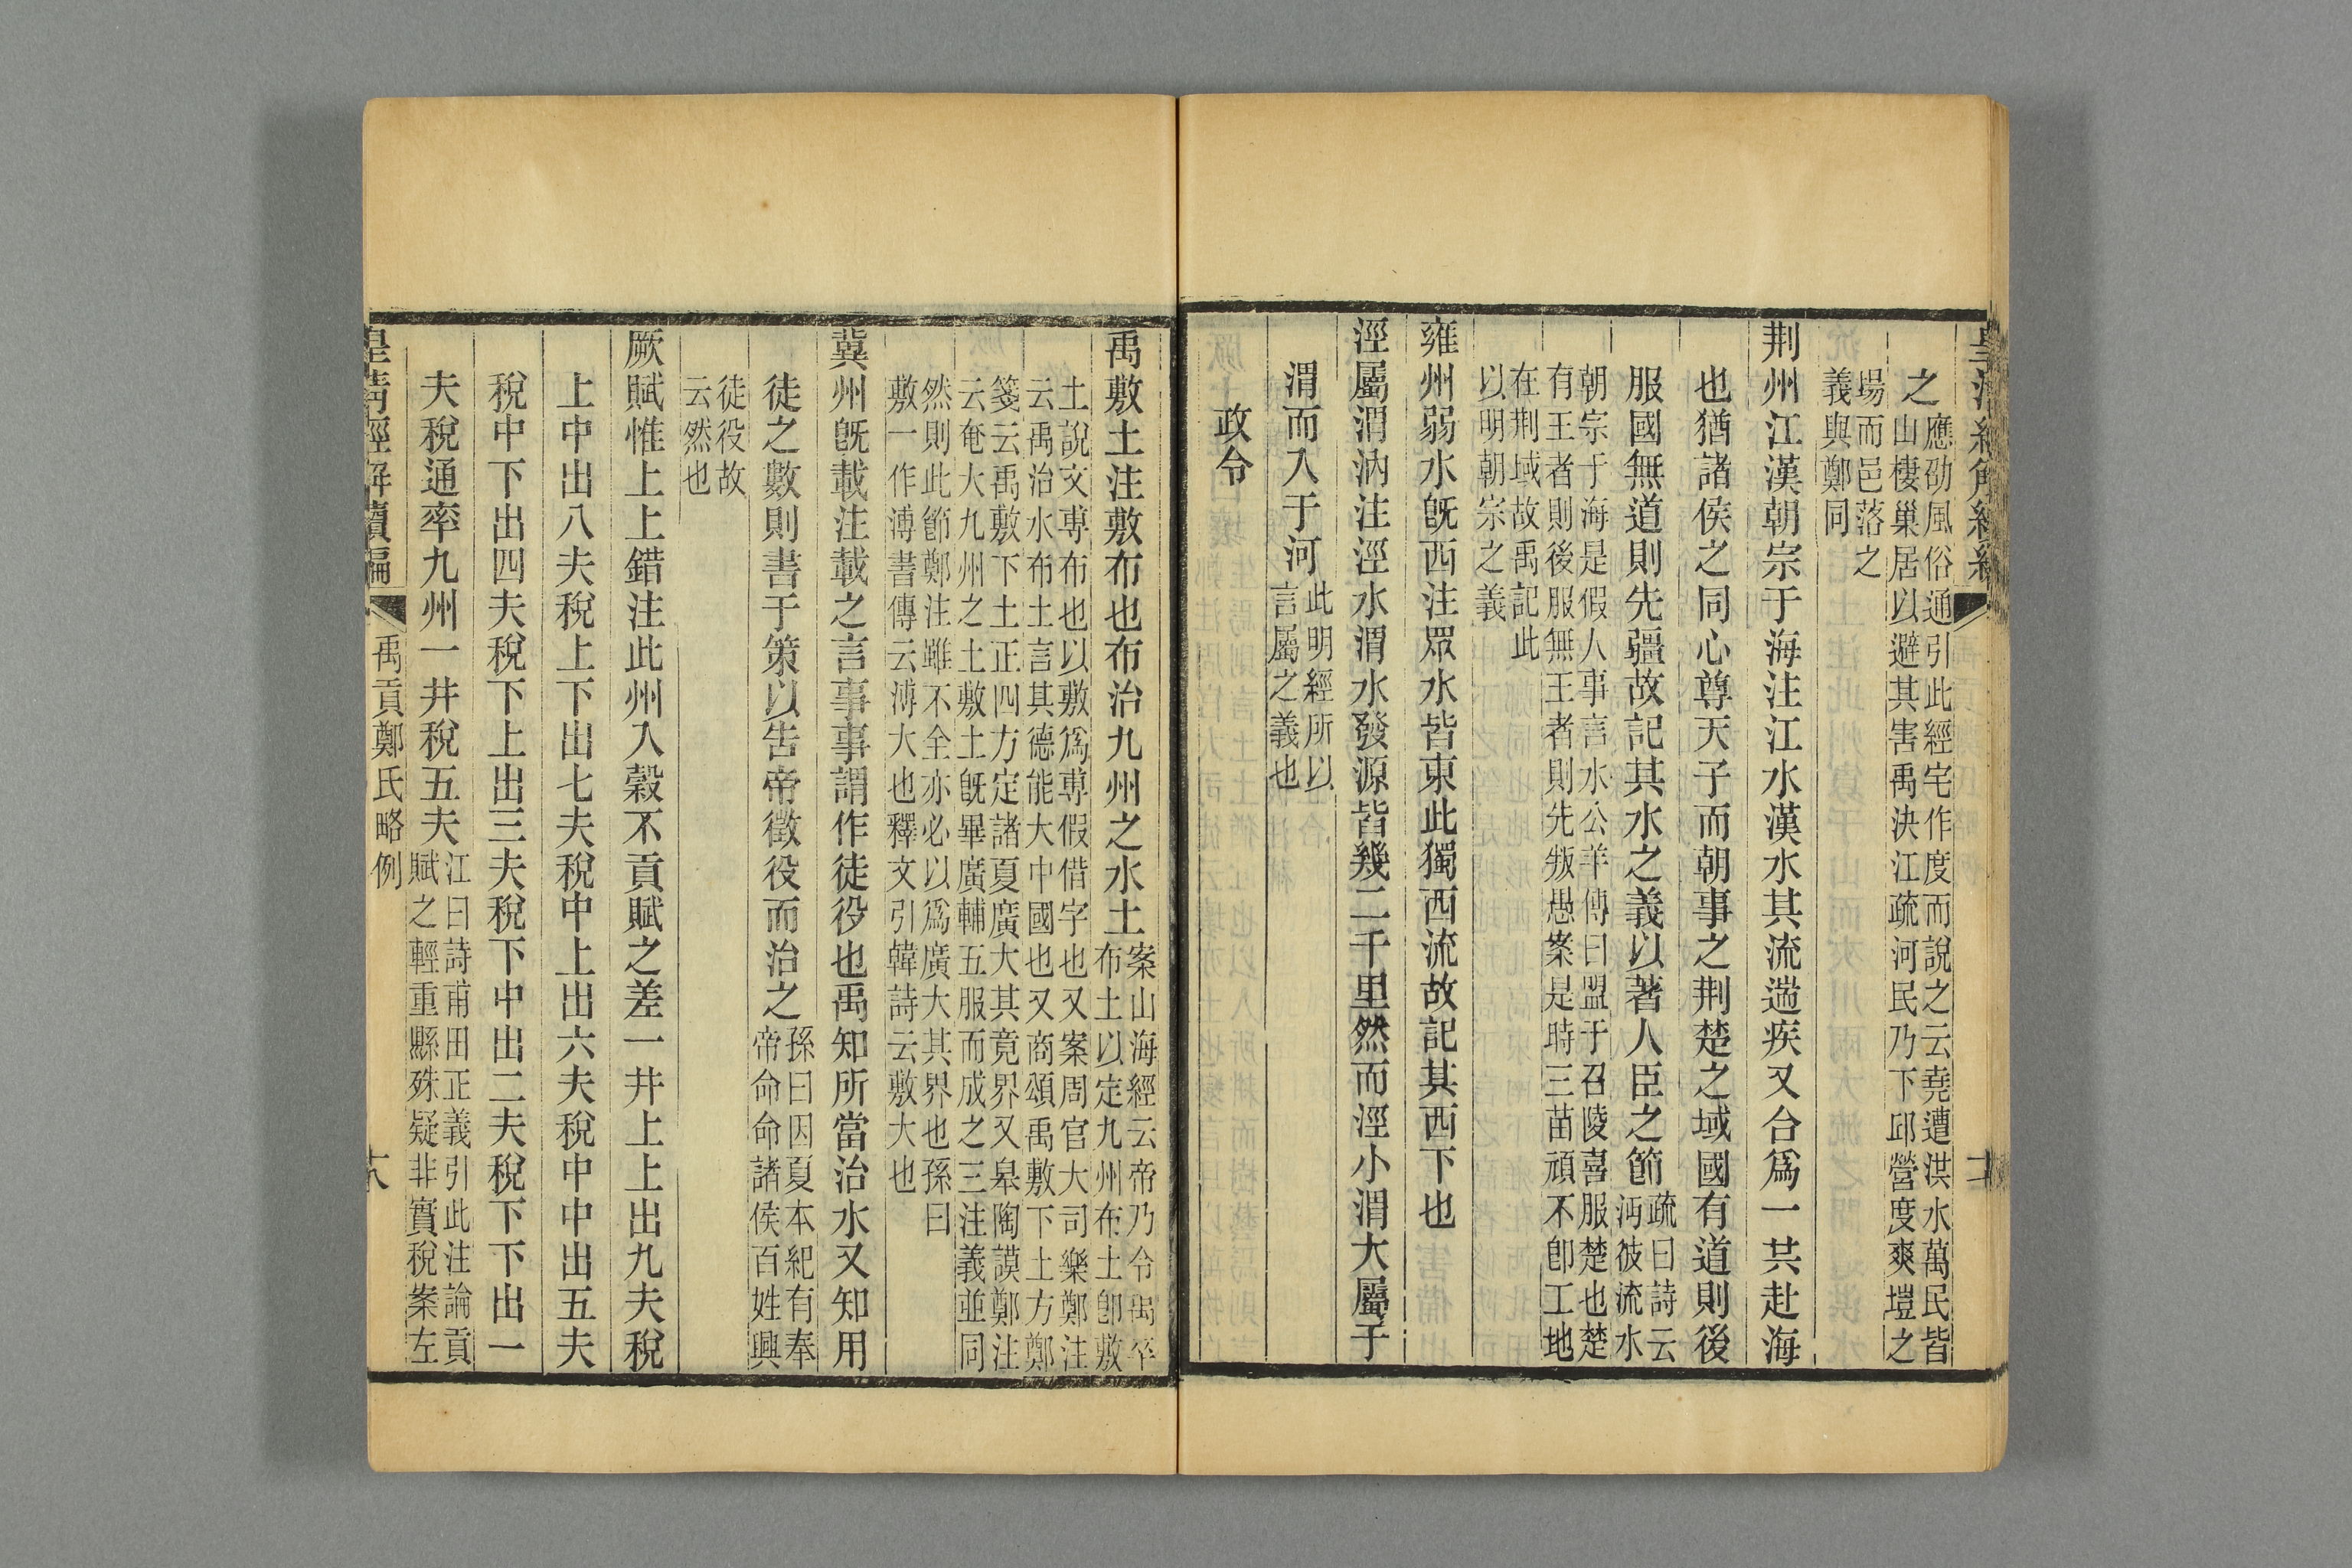 之應劭風俗通引此經宅作度而說之云堯遭洪水萬民皆
山棲巢居以避其害禹決江疏河民乃下邱營度爽塏之
場而邑落之
義與鄭同
荆州江漢朝宗于海注江水漢水其流遄疾又合爲一共赴海
也猶諸侯之同心尊天子而朝事之荆楚之域國有道則後
服國無道則先彊故記其水之義以著人臣之節疏曰詩云
沔彼流水
朝宗于海是假人事言水公羊傳曰盟于召陵喜服楚也楚
有王者則後服無王者則先叛愚案是時三苗頑不卽工地
在荆域故禹記此
以明朝宗之義
雍州弱水旣西注眾水皆東此獨西流故記其西下也
涇屬渭汭注涇水渭水發源皆幾二千里然而涇小渭大屬于
渭而入于河此明經所以
言屬之義也
政令
禹敷土注敷布也布治九州之水土案山海經云帝乃令禹卒
布土以定九州布土卽敷
土說文尃布也以敷爲尃假借字也又案周官大司樂鄭注
云禹治水布土言其德能大中國也又商頌禹敷下土方鄭
箋云禹敷下土正四方定諸夏廣大其竟界又皋陶謨鄭注
云奄大九州之土敷土旣畢廣輔五服而成之三注義並同
然則此節鄭注雖不全亦必以爲廣大其界也孫曰
敷一作溥書傳云溥大也釋文引韓詩云敷大也
冀州旣載注載之言事事謂作徒役也禹知所當治水又知用
徒之數則書于策以告帝徵役而治之孫曰因夏本紀有奉
帝命命諸侯百姓興
徒役故
云然也
厥賦惟上上錯注此州入穀不貢賦之差一井上上出九夫稅
上中出八夫稅上下出七夫稅中上出六夫稅中中出五夫
稅中下出四夫稅下上出三夫稅下中出二夫稅下下出一
夫稅通率九州一井稅五夫江曰詩甫田正義引此注論貢
賦之輕重縣殊疑非實稅案左
皇清經解續編 禹貢鄭氏略例